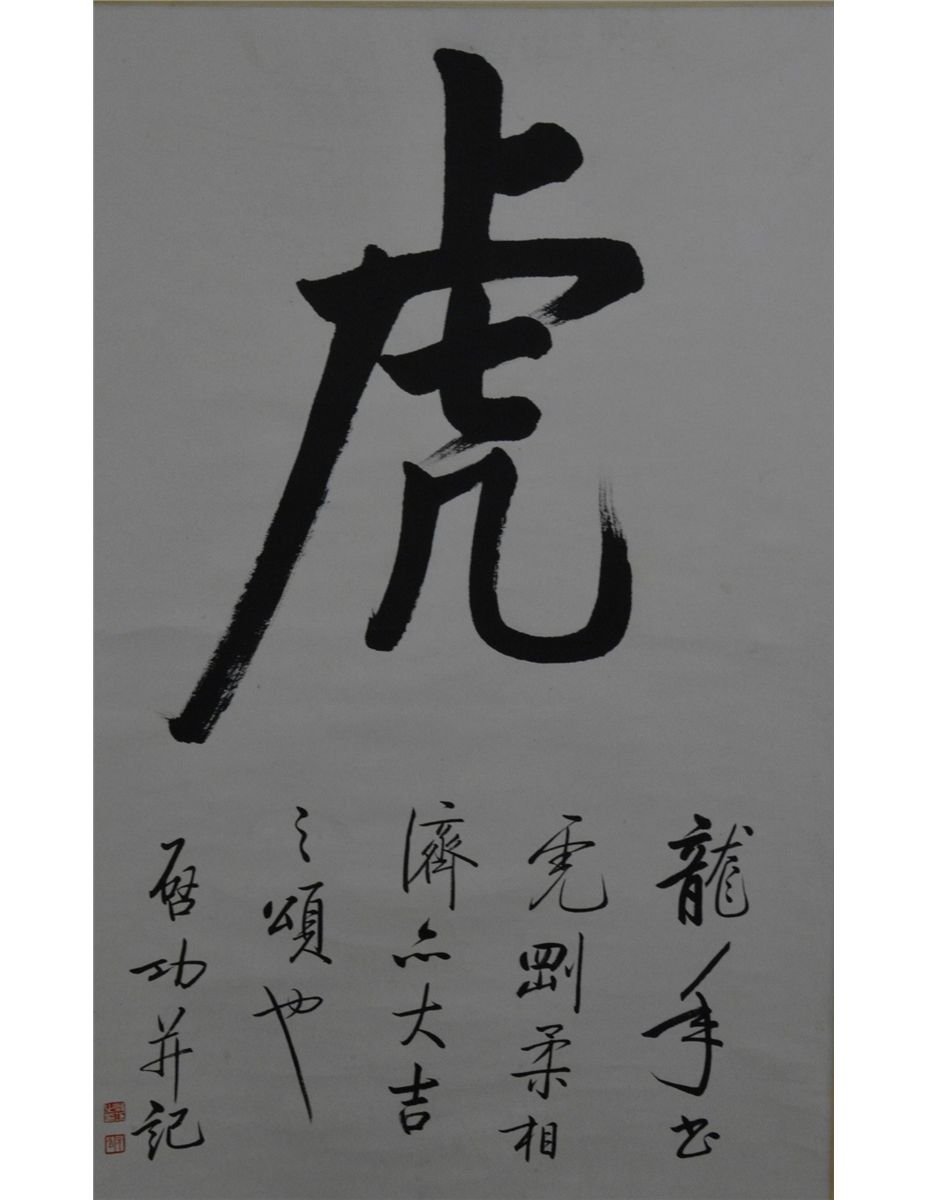 虎
龍年书
虎剛柔相
濟亦大吉
之頌也
启功并記